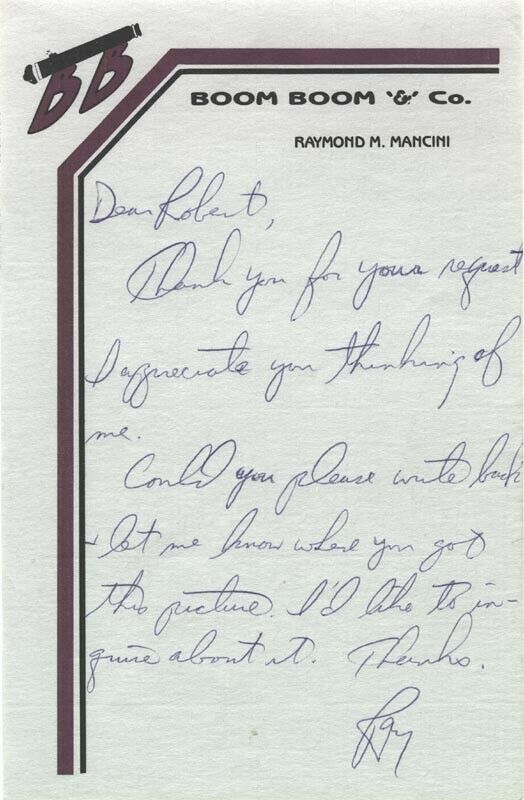 BB
BOOM BOOM '&' Co.
RAYMOND M. MANCINI
Dear Robert,
Thank you for your request
I appreciate you thinking of
me.
Could you please write back
+ let me know where you got
this picture. I'd like to in-
quire about it. Thanks.
Ray